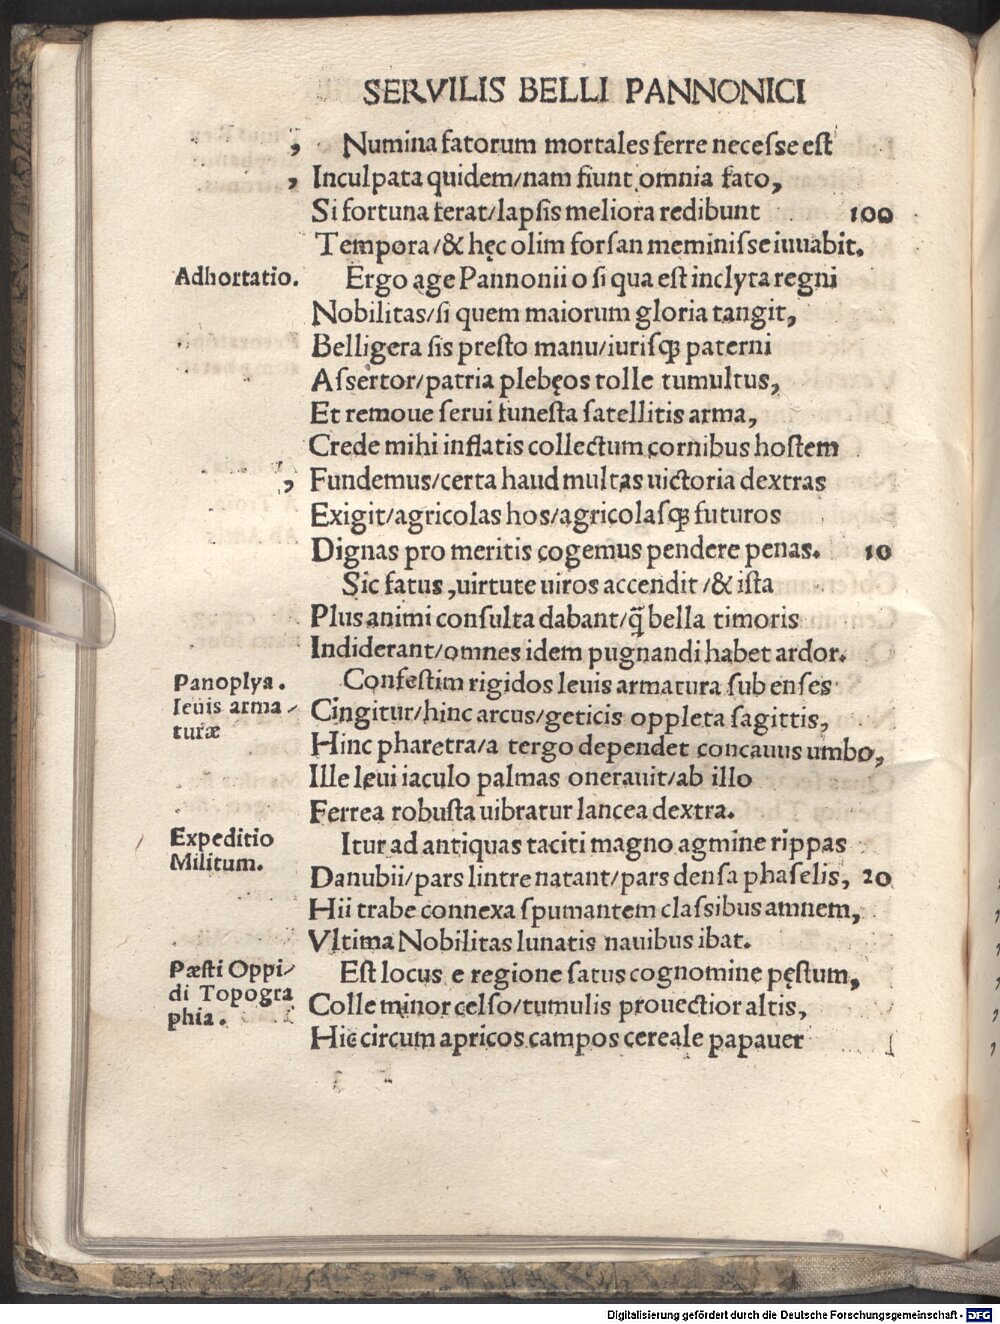 SERVILIS BELLI PANNONICI
, Numina fatorum mortales ferre necesse est
, Inculpata quidem/nam fiunt omnia fato,
Si fortuna ferat/lapsis meliora redibunt 100
Tempora/& hęc olim forsan meminisse iuuabit.
Adhortatio. Ergo age Pannonii o si qua est inclyta regni
Nobilitas/si quem maiorum gloria tangit,
Belligera sis presto manu/iurisqꝫ paterni
Assertor/patria plebęos tolle tumultus,
Et remoue serui funesta satellitis arma,
Crede mihi inflatis collectum cornibus hostem
, Fundemus/certa haud multas uictoria dextras
Exigit/agricolas hos/agricolasqꝫ futuros
Dignas pro meritis cogemus pendere penas. 10
Sic fatus ,uirtute uiros accendit/& ista
Plus animi consulta dabant/q̃ bella timoris
Indiderant/omnes idem pugnandi habet ardor.
Panoplya. Confestim rigidos leuis armatura sub enses
leuis arma/ Cingitur/hinc arcus/geticis oppleta sagittis,
turæ
Hinc pharetra/a tergo dependet concauus umbo,
Ille leui iaculo palmas onerauit/ab illo
Ferrea robusta uibratur lancea dextra.
Expeditio Itur ad antiquas taciti magno agmine rippas
Militum. Danubii/pars lintre natant/pars densa phaselis, 20
Hii trabe connexa spumantem classibus amnem,
Vltima Nobilitas lunatis nauibus ibat.
Pæsti Oppi/ Est locus e regione satus cognomine pęstum,
di Topogra Colle minor celso/tumulis prouectior altis,
phia. Hic circum apricos campos cereale papauer
Digitalisierung gefördert durch die Deutsche Forschungsgemeinschaft - DFG